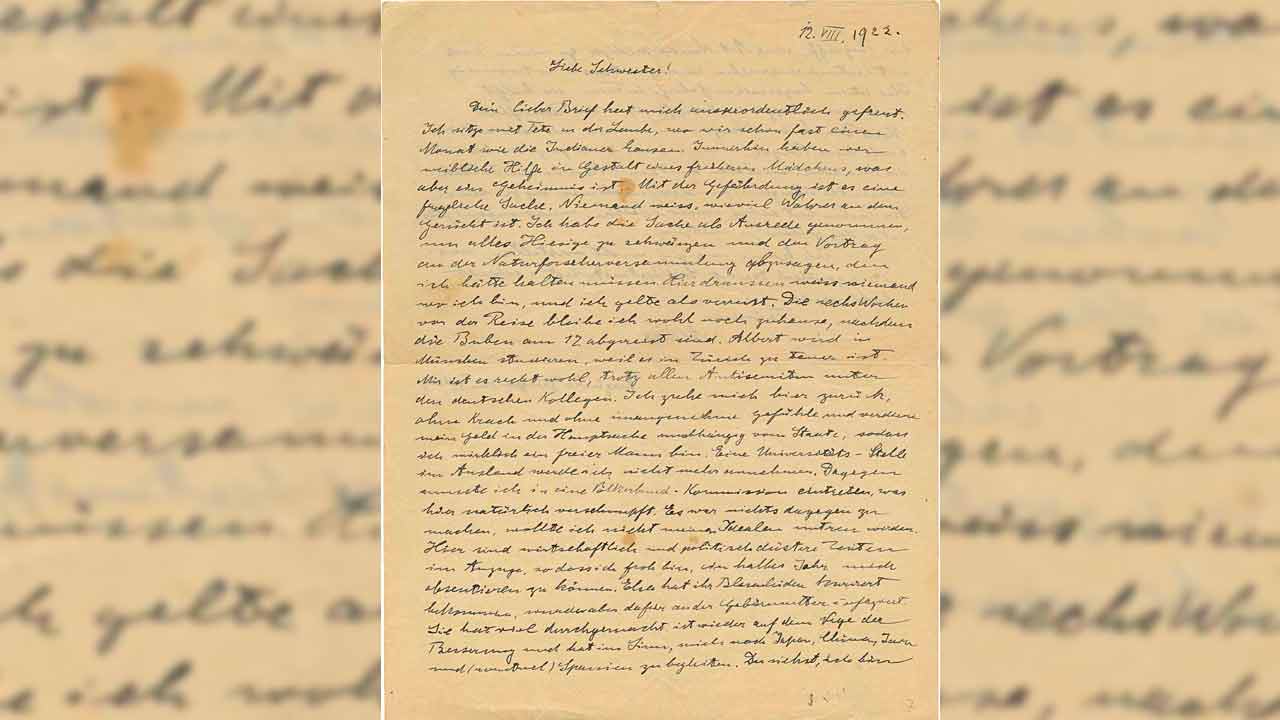 12. VIII. 1922.
Liebe Schwester!
Dein lieber Brief hat mich ausserordentlich gefreut.
Ich sitze mit Tete in der Laube, wo wir schon fast einen
Monat wie die Indianer hausen. Immerhin haben wir
weibliche Hilfe in Gestalt eines früheren Mädchens, was
aber ein Geheimnis ist. Mit der Gefährdung ist es eine
fragliche Sache. Niemand weiss, wieviel Wahres an dem
Gerücht ist. Ich habe die Sache als Ausrede genommen,
um alles Hiesige zu schwänzen und den Vortrag
an der Naturforscherversammlung abzusagen, den
ich hätte halten müssen. Hierdraussen weiss niemand
wo ich bin, und ich gelte als verreist. Die sechs Wochen
vor der Reise bleibe ich wohl noch zuhause, nachdem
die Buben am 17 abgereist sind. Albert wird in
München studieren, weil es in Zürich zu teuer ist.
Mir ist es recht wohl, trotz allen Antisemiten unter
den deutschen Kollegen. Ich ziehe mich hier zurück,
ohne Krach und ohne unangenehme Gefühle und verdiene
mein Geld in der Hauptsache unabhängig vom Staate, sodass
ich wirklich ein freier Mann bin. Eine Universitäts-Stelle
im Ausland werde ich nicht mehr annehmen. Dagegen
musste ich in eine Völkerbund-Kommission eintreten, was
hier natürlich verschnupft. Es war nichts dagegen zu
machen, wollte ich nicht meinen Idealen untreu werden.
Hier sind wirtschaftlich und politisch düstere Zeiten
im Anzuge, sodass ich froh bin, ein halbes Jahr mich
absentieren zu können. Elsa hat ihr Blasenleiden kuriert
bekommen, wurde aber dafür an der Gebärmutter infiziert.
Sie hat viel durchgemacht ist wieder auf dem Wege der
Besserung und hat im Sinn, mich nach Japan, China, Java
und (eventuel) Spanien zu begleiten. Du siehst, ich bin